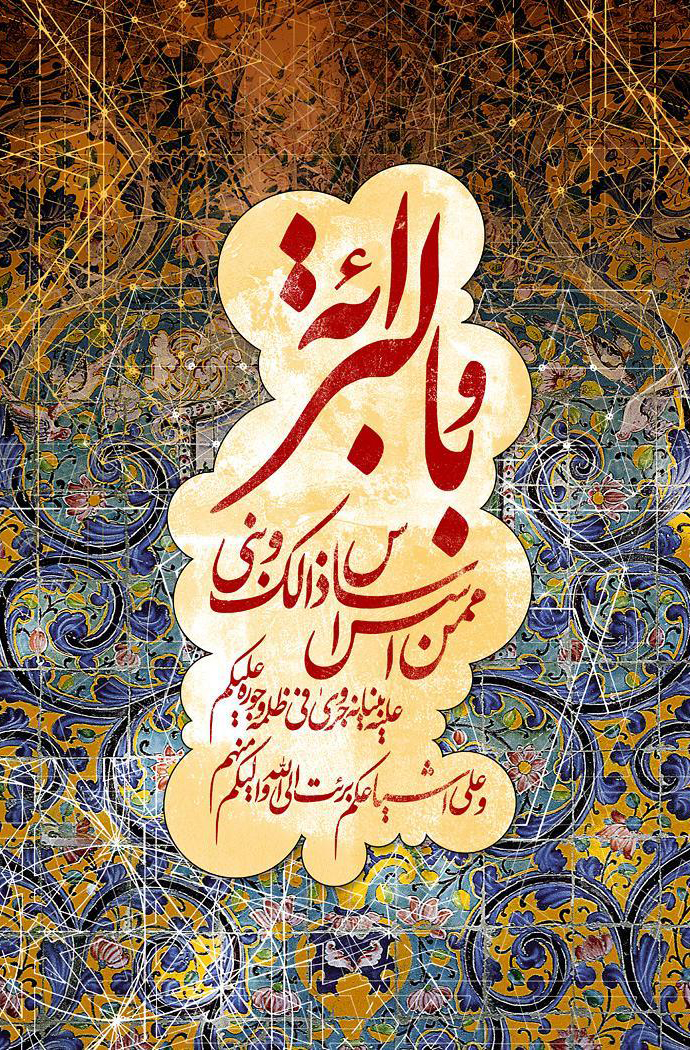 وبالبرائة
ممن اسس اساس ذالک وبنی
علیه بنیانه وجری فی ظلمه وجوره علیکم
وعلی اشیاعکم برئت الی الله والیکم منهم